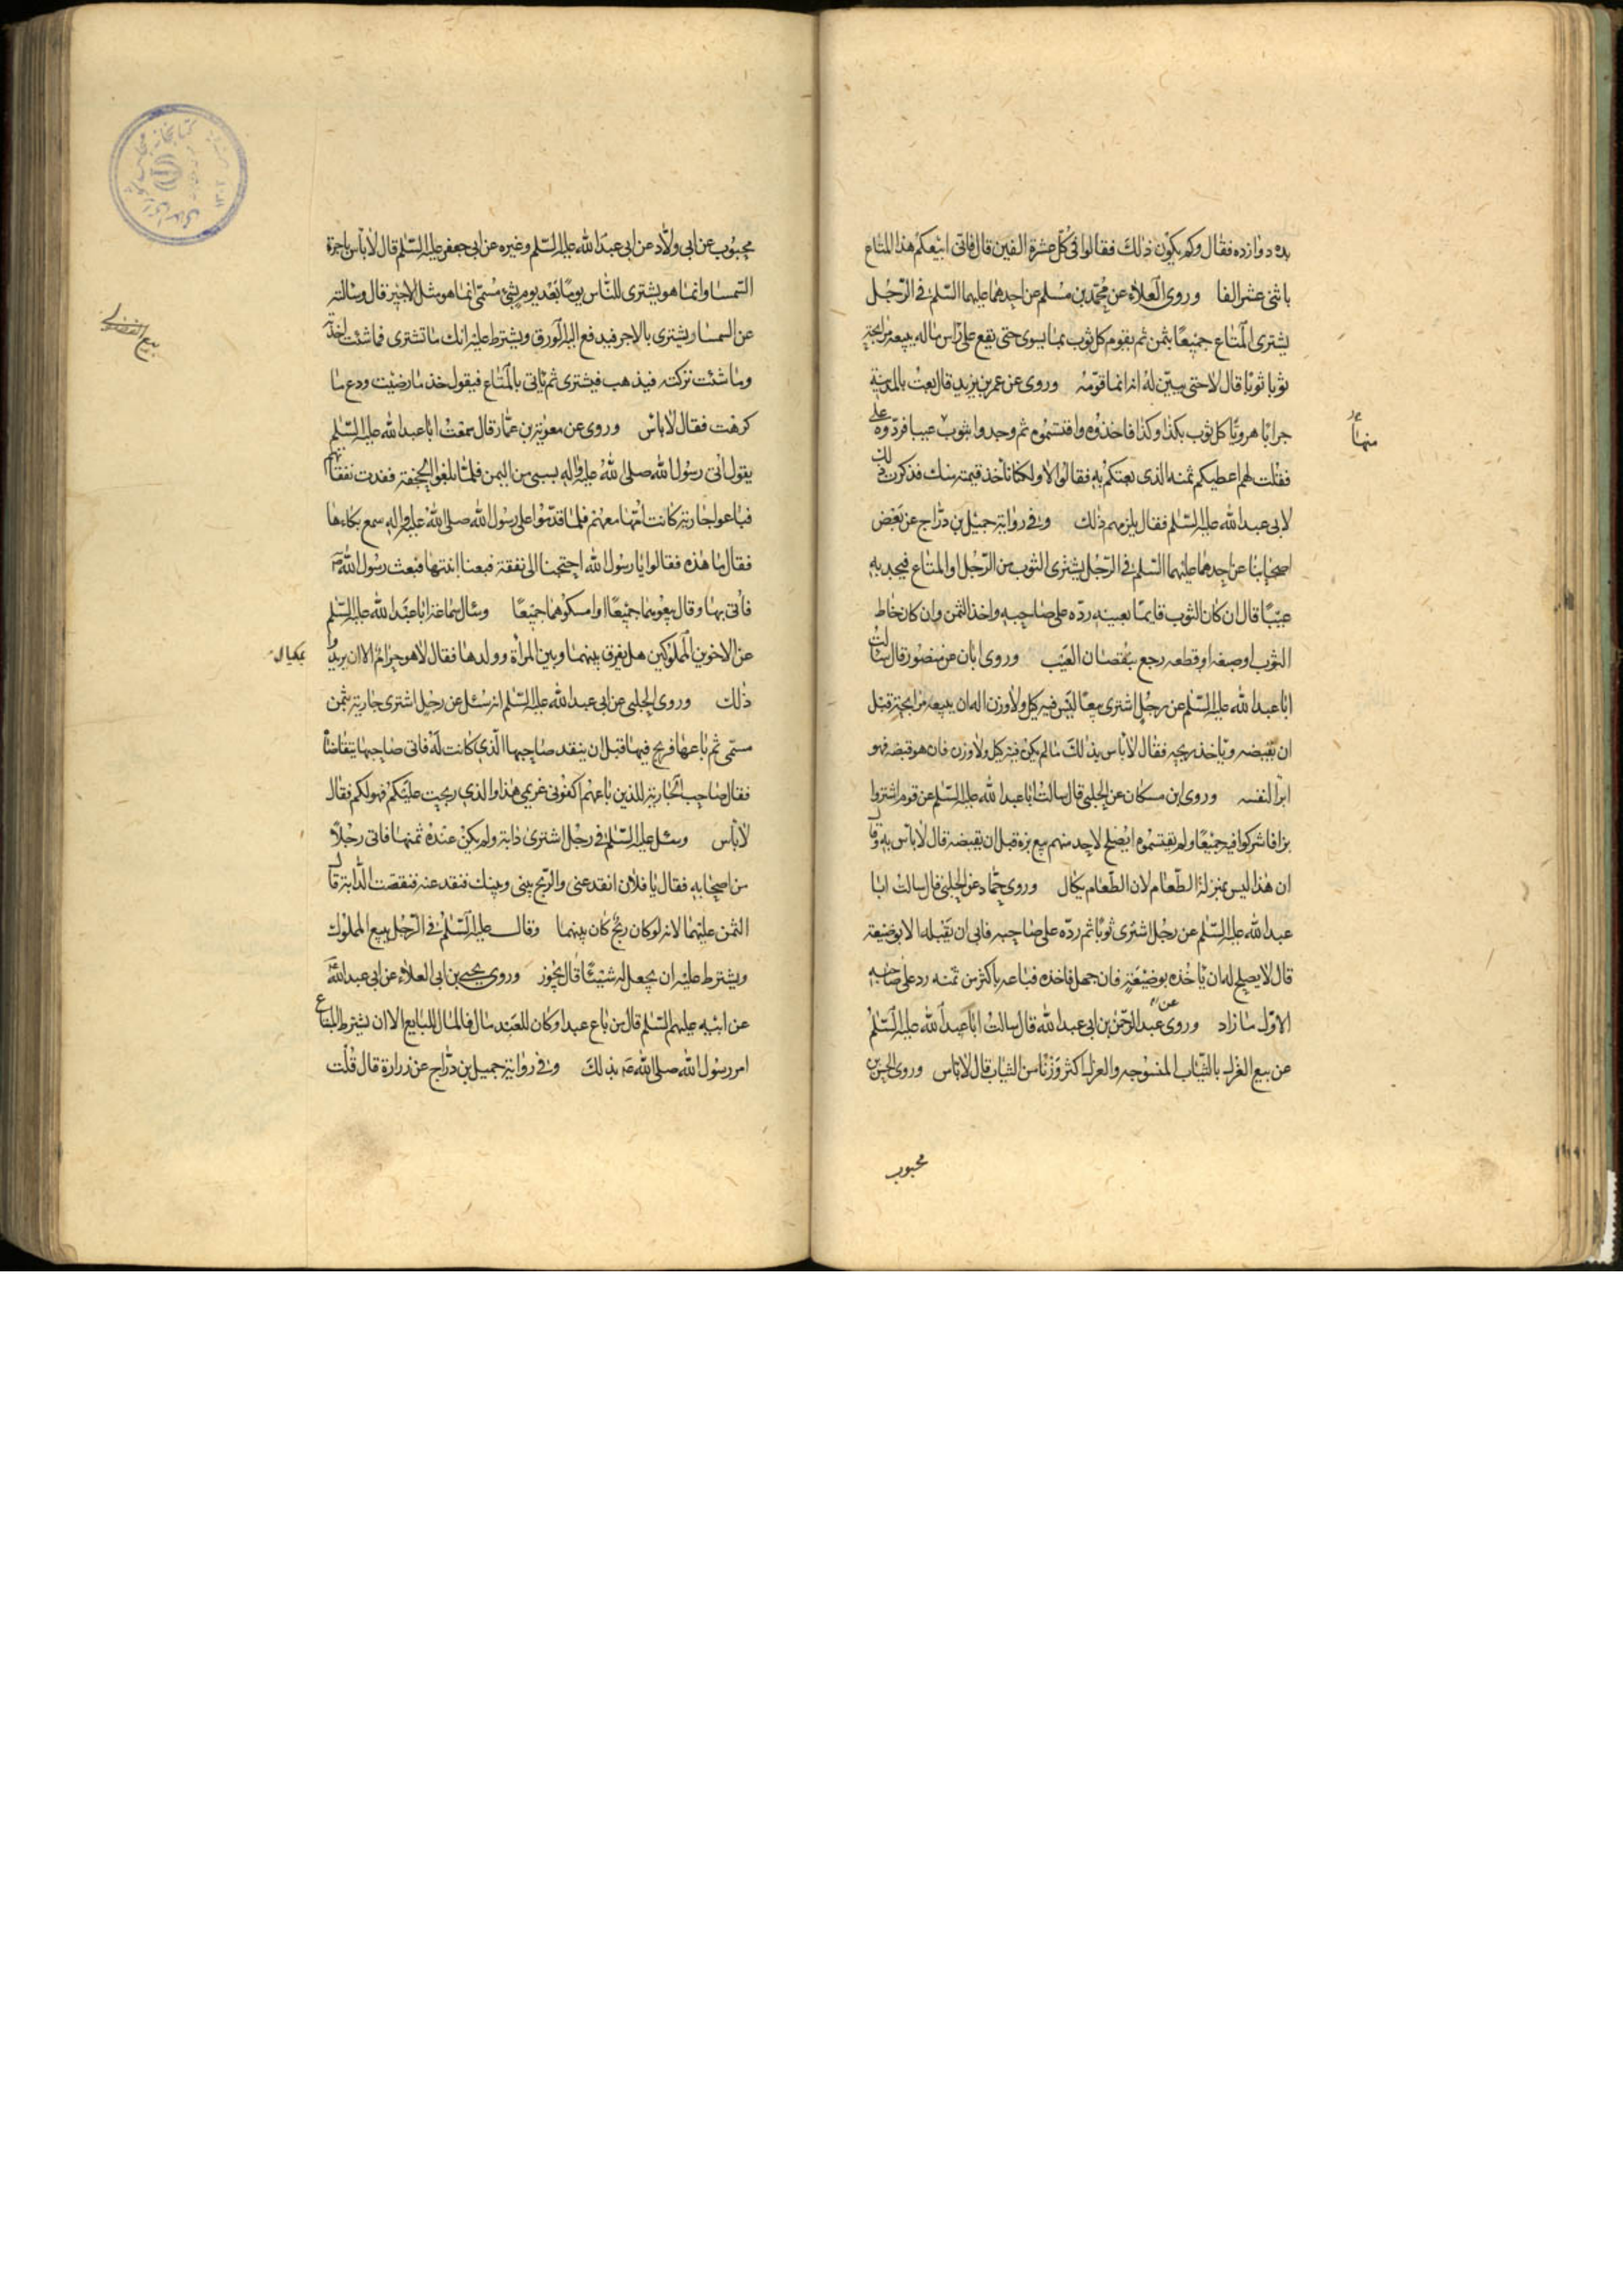 بده دوازده فقال وكم يكون ذلك فقالوا في كل عشرة الفين قال فاني ابيعكم هذا المتاع
باثني عشر الفا وروى العلاء عن محمد بن مسلم عن احدهما عليهما السلم في الرجل
يشتري المتاع جميعا بثمن ثم يقوم كل ثوب بما يسوى حتى يقع على راس ماله يبيعه مرابحة
ثوبا ثوبا قال لا حتى يبين له انه انما قومه وروى عن عمر بن يزيد قال بعت بالمدينة
جرابا هرويا كل ثوب بكذا وكذا فاخذوه واقتسموه ثم وجدوا بثوب عيبا فردوه على
منها
فقلت لهم اعطيكم ثمنه الذي بعتكم به فقالوا لا ولكنا ناخذ قيمته منك فذكرت ذلك
لابي عبد الله عليه السلم فقال يلزمهم ذلك وفي رواية جميل بن دراج عن بعض
اصحابنا عن احدهما عليهما السلم في الرجل يشتري الثوب من الرجل او المتاع فيجد به
عيبا قال ان كان الثوب قايما بعينه رده على صاحبه واخذ الثمن وان كان خاط
الثوب او صبغه او قطعه رجع بنقصان العيب وروى ابان عن منصور قال سالت
ابا عبد الله عليه السلم عن رجل اشترى بيعا ليس فيه كيل ولا وزن اله ان يبيعه مرابحة قبل
ان يقبضه وياخذ ربحه فقال لا باس بذلك ما لم يكن فيه كيل ولا وزن فان هو قبضه فهو
ابرا لنفسه وروى ابن مسكان عن الحلبي قال سالت ابا عبد الله عليه السلم عن قوم اشتروا
بزا فاشتركوا فيه جميعا ولم يقتسموه ايصلح لاحد منهم بيع بزه قبل ان يقبضه قال لا باس به وقال
ان هذا ليس بمنزلة الطعام لان الطعام يكال وروى حماد عن الحلبي قال سالت ابا
عبد الله عليه السلم عن رجل اشترى ثوبا ثم رده على صاحبه فابى ان يقبله الا بوضيعة
قال لا يصلح له ان ياخذه بوضيعة فان جهل فاخذه فباعه باكثر من ثمنه رد على صاحبه
الاول ما زاد وروى عن عبد الرحمن بن ابي عبد الله قال سالت ابا عبد الله عليه السلم
عن بيع الغزل بالثياب المنسوجه والغزل اكثر وزنا من الثياب قال لا باس وروى الحسن بن
محبوب
محبوب عن ابي ولاد عن ابي عبد الله عليه السلم وغيره عن ابي جعفر عليه السلم قال لا باس باجرة
السمسار وانما هو يشتري للناس يوما بعد يوم بشيء مسمى انما هو مثل الاجير قال وسالته
عن السمسار يشتري بالاجر فيدفع اليه الورق ويشترط عليه انك ما تشتري فما شئت اخذته
وما شئت تركته فيذهب فيشتري ثم ياتي بالمتاع فيقول خذ ما رضيت ودع ما
كرهت فقال لا باس وروى عن معوية بن عمار قال سمعت ابا عبد الله عليه السلم
يقول اتى رسول الله صلى الله عليه واله بسبي من اليمن فلما بلغوا الجحفة نفدت نفقاتهم
فباعوا جارية كانت امها معهم فلما قدموا على رسول الله صلى الله عليه واله سمع بكاءها
فقال ما هذه فقالوا يا رسول الله احتجنا الى نفقة فبعنا ابنتها فبعث رسول الله ص
فاتى بها وقال بيعوهما جميعا او امسكوهما جميعا وسال سماعة ابا عبد الله عليه السلم
عن الاخوين المملوكين هل يفرق بينهما وبين المراة وولدها فقال لا هو حرام الا ان يريدوا
ذلك وروى الحلبي عن ابي عبد الله عليه السلم انه سئل عن رجل اشترى جارية بثمن
مسمى ثم باعها فربح فيها قبل ان ينقد صاحبها الذي كانت له فاتى صاحبها يتقاضاه
فقال صاحب الجارية للذين باعهم اكفوني غريمي هذا والذي ربحت عليكم فهو لكم فقال
لا باس وسئل عليه السلم في رجل اشترى دابة ولم يكن عنده ثمنها فاتى رجلا
من اصحابه فقال يا فلان انقد عني والربح بيني وبينك فنقد عنه فنفقت الدابة قال
الثمن عليهما لانه لو كان ربح كان بينهما وقال عليه السلم في الرجل يبيع المملوك
ويشترط عليه ان يجعل له شيئا قال يجوز وروى يحيى بن ابي العلاء عن ابي عبد الله
عن ابيه عليهم السلم قال من باع عبدا وكان للعبد مال فالمال للبايع الا ان يشترط المبتاع
امر رسول الله صلى الله ص بذلك وفي رواية جميل بن دراج عن زرارة قال قلت